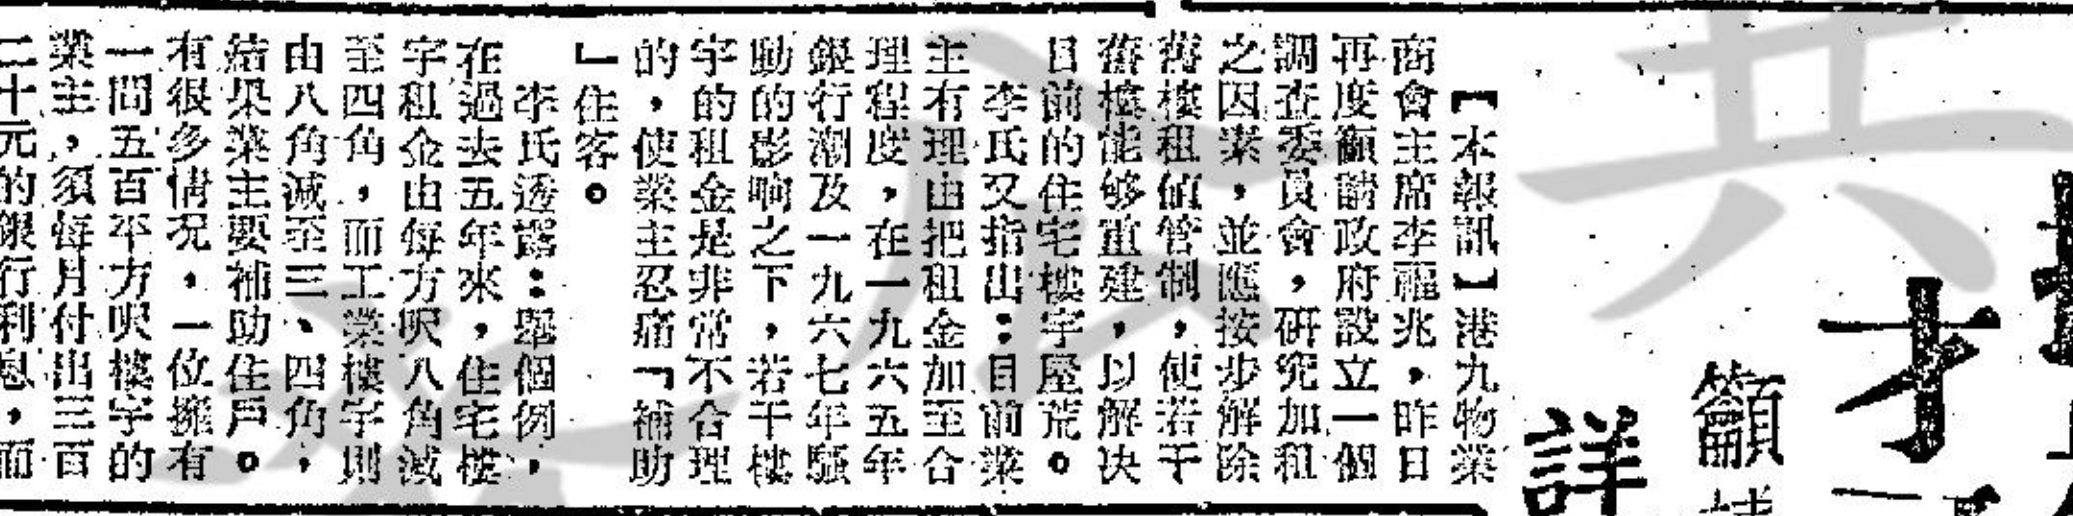 【本報訊】港九物業
商會主席李福兆，昨日
再度籲請政府設立一個
調查委員會，研究加租
之因素，並應按步解除
舊樓租值管制，使若干
舊樓能够重建，以解決
目前的住宅樓宇屋荒。
李氏又指出：目前業
主有理由把租金加至合
理程度，在一九六五年
銀行潮及一九六七年騷
動的影响之下，若干樓
宇的租金是非常不合理
的，使業主忍痛「補助
」住客。
李氏透露：舉個例，
在過去五年來，住宅樓
宇租金由每方呎八角減
至四角，而工業樓宇則
由八角減至三、四角，
結果業主要補助住戶。
有很多情況，一位擁有
一間五百平方呎樓宇的
業主，須每月付出三百
二十元的銀行利息，而
共
籲
才
詳